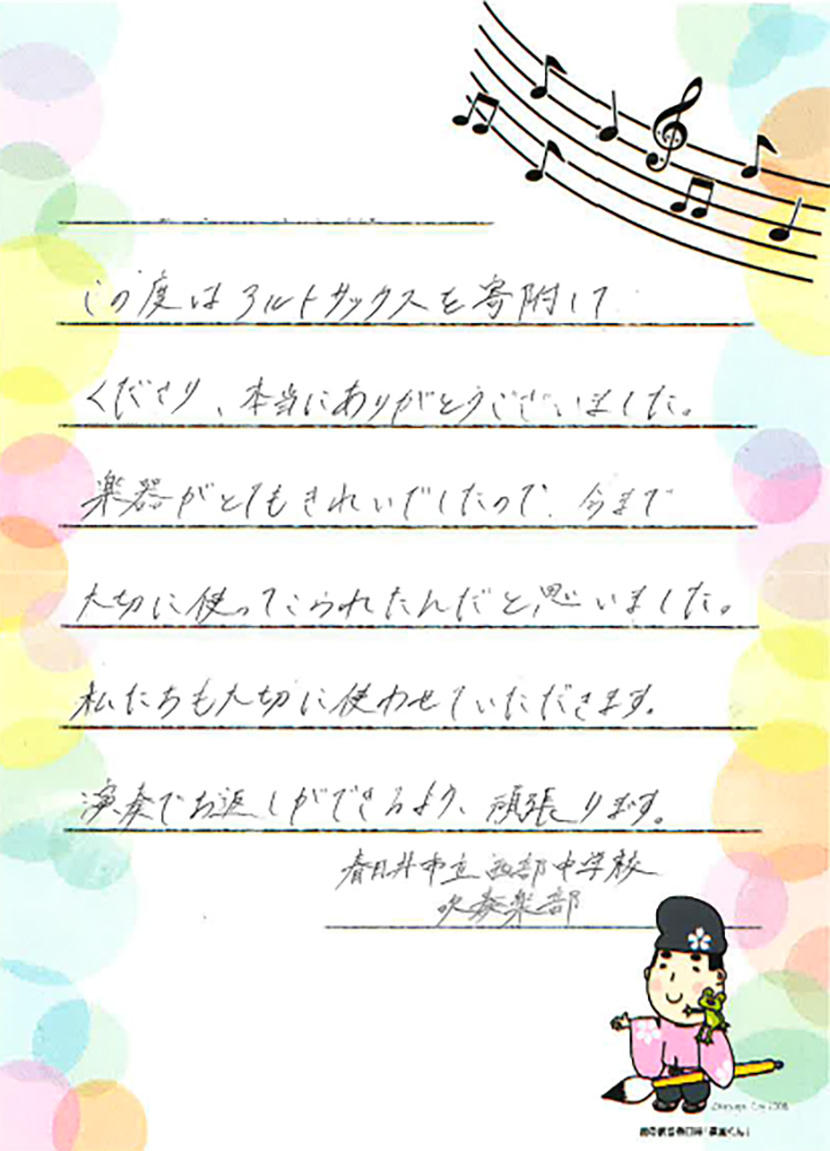 この度はアルトサックスを寄附して
くださり、本当にありがとうございました。
楽器がとてもきれいでしたので、今まで
大切に使ってこられたんだと思いました。
私たちも大切に使わせていただきます。
演奏でお返しができるよう、頑張ります。
春日井市立西部中学校
吹奏楽部